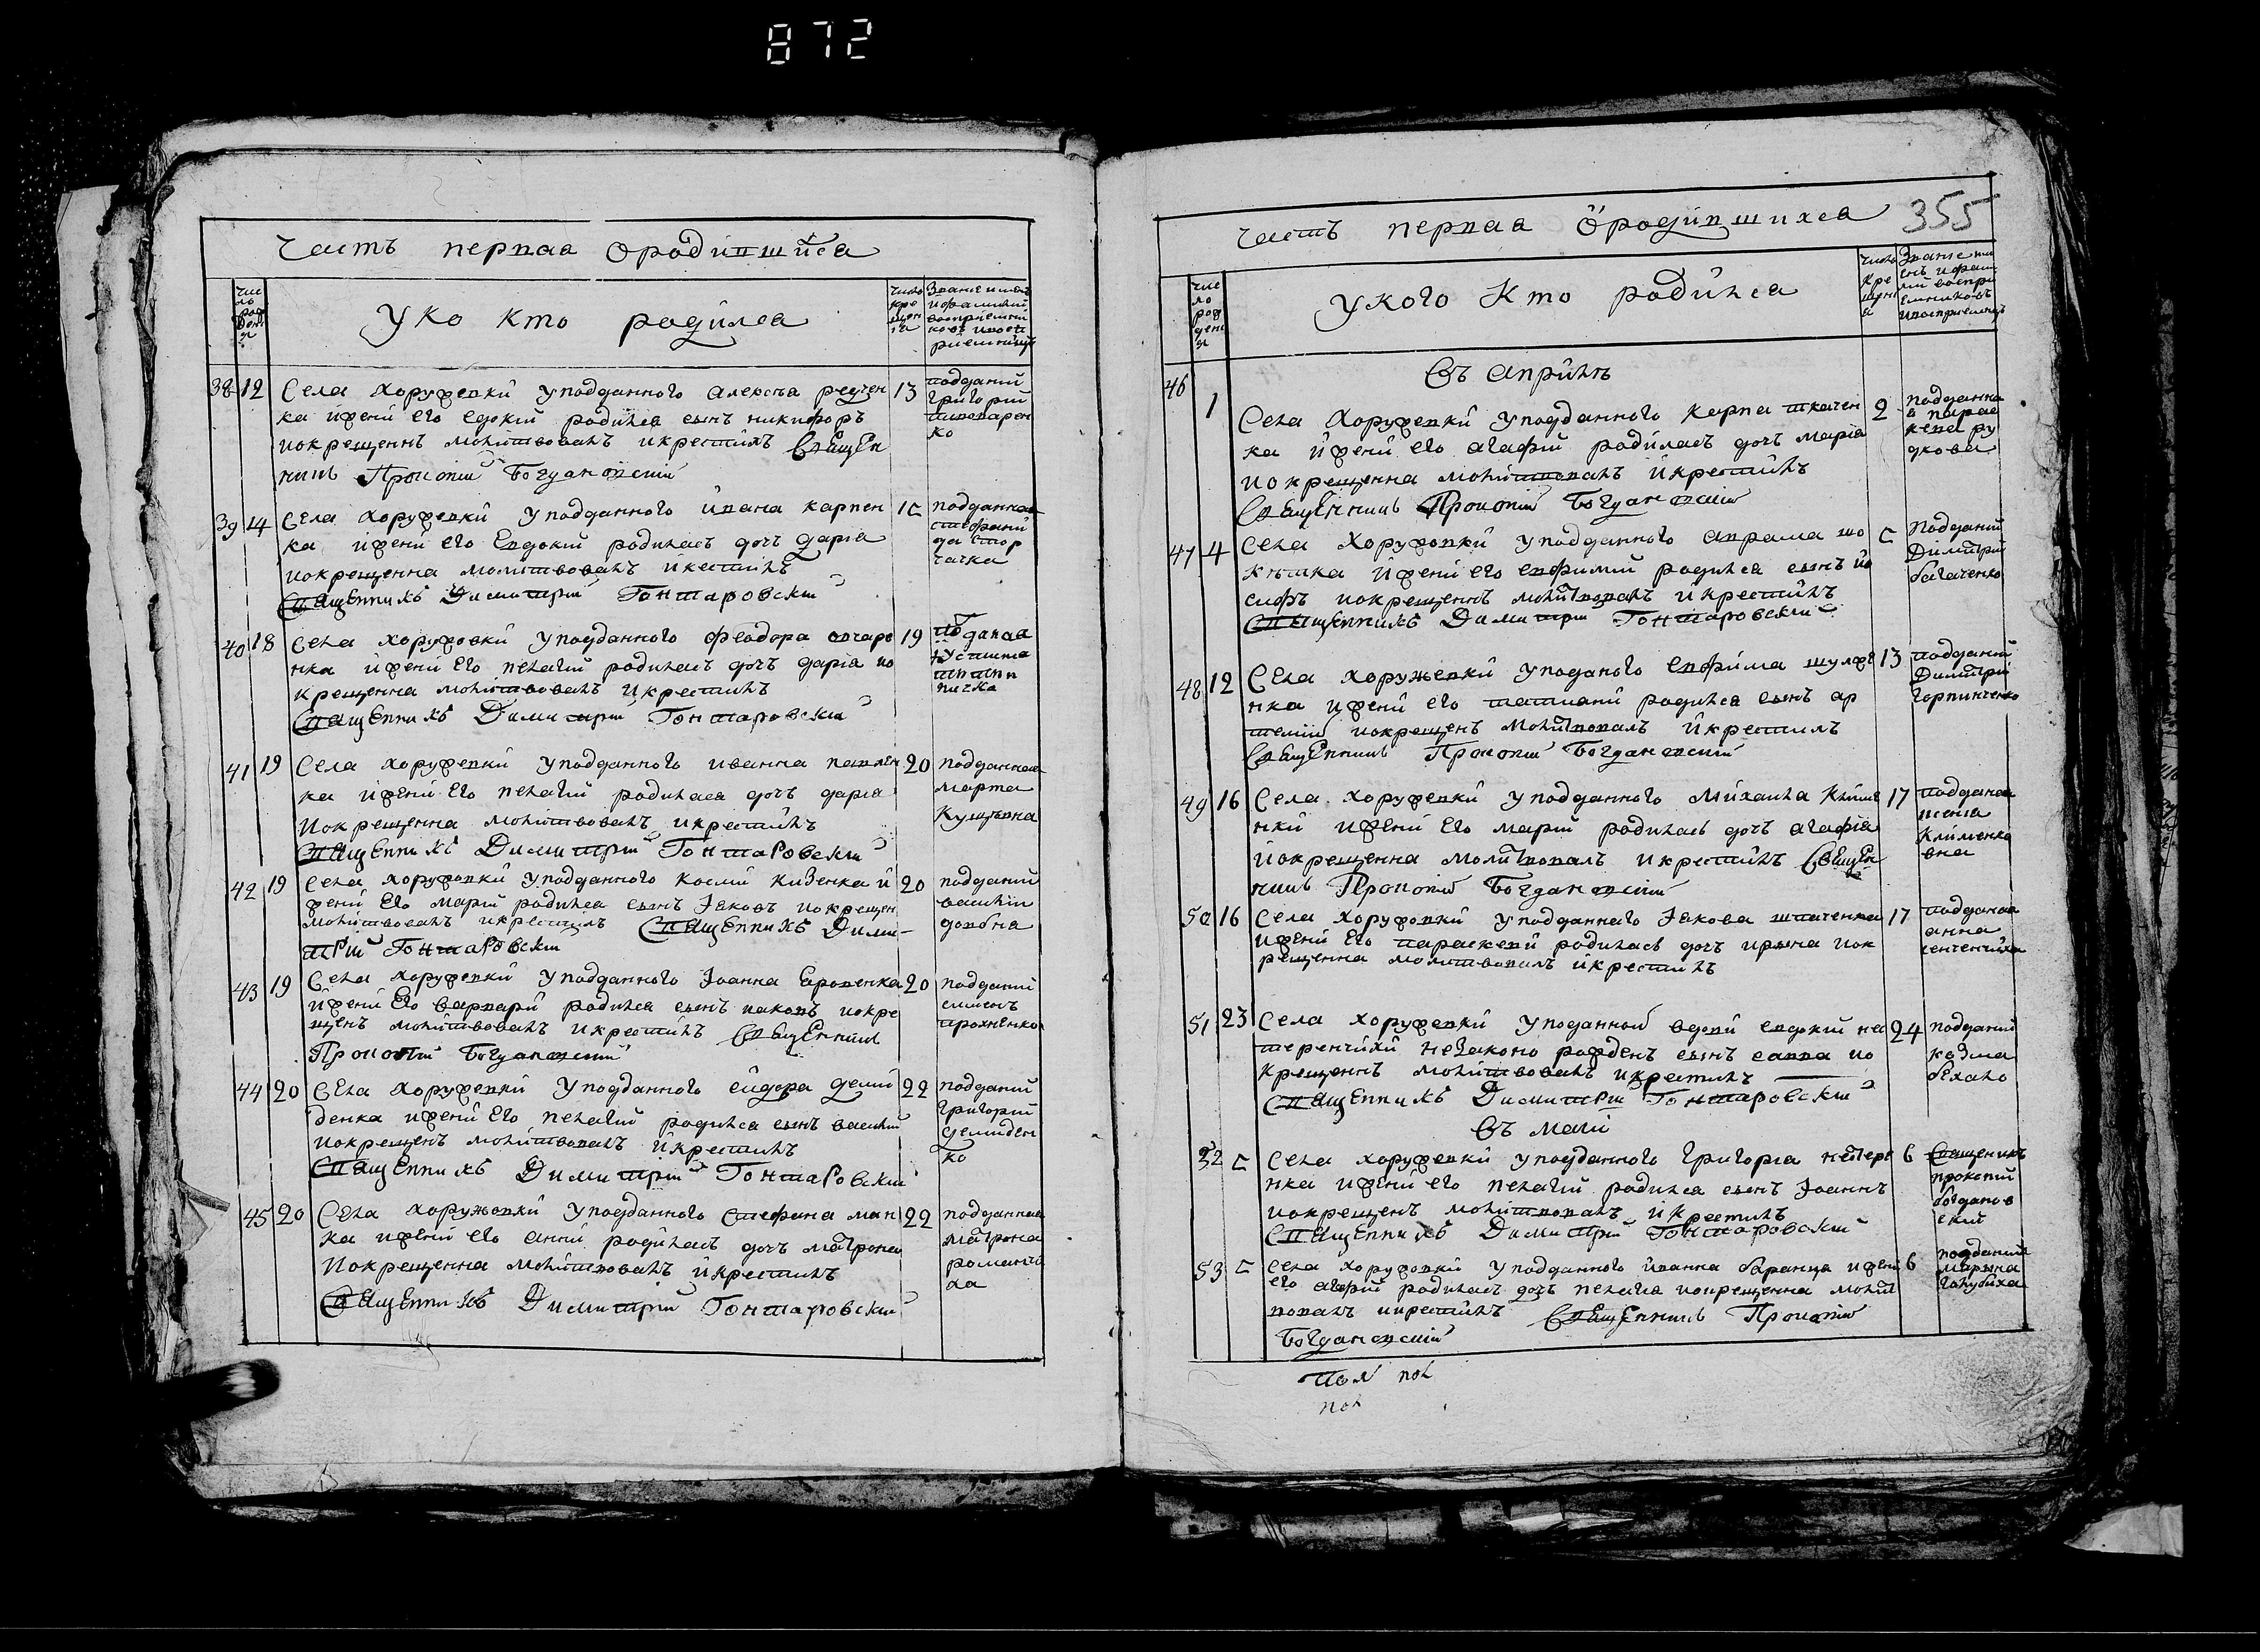 872
Часть первая ородившихся
число рождения
У ко кто родился
число крещения
Звание имя и фамилий восприемников и восприемниц
38 12 Села хоружевки у подданного алексея
ка ижени его едокий родился сынъ никифоръ
и окрещеннъ молитвовалъ и крестилъ Священ
никъ Прокопий Богдановский
13 подданий
григорий
ко
39 14 Села хоружевки у подданного ивана карпен
ка ижени его евдокий родилась дочъ дария
и окрещенна молитвовалъ и крестилъ
Священникъ Димитрий Гонтаровский
15 подданная
40 18 Села хоружовки у подданного феодора овчаре
нка ижени его пелагий родилась дочъ дария ио
крещенна молитвовалъ и крестилъ
Священникъ Димитрий Гонтаровский
19 поданая
41 19 Села хоружевки у подданного иванна павлен
ка ижени его пелагий родилася дочъ дария
и окрещенна молитвовалъ и крестилъ
Священникъ Димитрий Гонтаровский
20 подданная
марта
42 19 Села хоружовки у подданного космий кизенка и
жени его марий родился сынъ Іаковъ и окрещен
молитвовалъ и крестилъ Священникъ Дими-
трий Гонтаровский
20 подданий
василий
довбня
43 19 Села хоружевки у подданного Іоанна
ижени его варвари родился сынъ иаковъ иокре
щенъ молитвовалъ и крестилъ Священникъ
Прокопий Богдановский
20 подданий
симеонъ
44 20 Села хоружевки у подданного сидора деми
денка ижени его пелагий родился сынъ василий
и окрещенъ молитвовалъ и крестилъ
Священникъ Димитрий Гонтаровский
22 подданий
григорий
демиден
ко
45 20 Села хоружевки у подданного стефана ман
ка ижени его анни родилась дочъ матрона
и окрещенна молитвовалъ и крестилъ
Священникъ Димитрий Гонтаровский
22 подданная
матрона
романчи
ха
Часть первая ородившихся 355
число рождения
У кого кто родился
Въ априлъ
46 1 Села хоружевки у подданного карпа ткачен
ка ижени его агафий родилась дочъ мария
и окрещенна молитвовалъ и крестилъ
Священникъ Прокопий Богдановский
2 подданна
я парас
кева ру
дкова
47 4 Села хоружовки у подданного аврама шо
ижени его евфимий родился сынъ ио
сифъ и окрещеннъ молитвовалъ и крестилъ
Священникъ Димитрий Гонтаровский
5 Подданий
Димитрий
багаченко
48 12 Села хоружевки у поданого евфима шулже
нка ижени его татиани родился сынъ ар
темий и окрещенъ молитвовалъ и крестилъ
Священникъ Прокопий Богдановский
13 подданий
Димитрий
горпинченко
49 16 Села хоружевки у подданного михаила климе
нки ижени его марий родилась дочъ агафия
и окрещенна молитвовалъ и крестилъ Священ
никъ Прокопий Богдановский
17 подданая
ксения
клименко
вна
50 16 Села хоружовки у подданнаго Іакова шпаченка
ижени его параскеви родилась дочъ ирина иок
рещенна молитвовалъ и крестилъ
17 подданая
анна
51 23 Села хоружевки у поданной вдови евдокий не
стеренчихи незаконо рожденъ сынъ савва ио
крещеннъ молитвовалъ и крестилъ
Священникъ Димитрий Гонтаровский
24 подданий
козма
Въ маий
52 5 Села хоружевки у подданного григория нестере
нка ижени его пелагий родился сынъ Іоаннъ
и окрещенъ молитвовалъ и крестилъ
Священникъ Димитрий Гонтаровский
6 Священикъ
прокопий
богданов
ский
53 5 Села хоружовки у подданного иванна баранца ижени
его агафий родилась дочъ пелагия иокрещенна молит
вовалъ и крестилъ Священникъ Прокопий
Богдановский
6
марина
голубиха